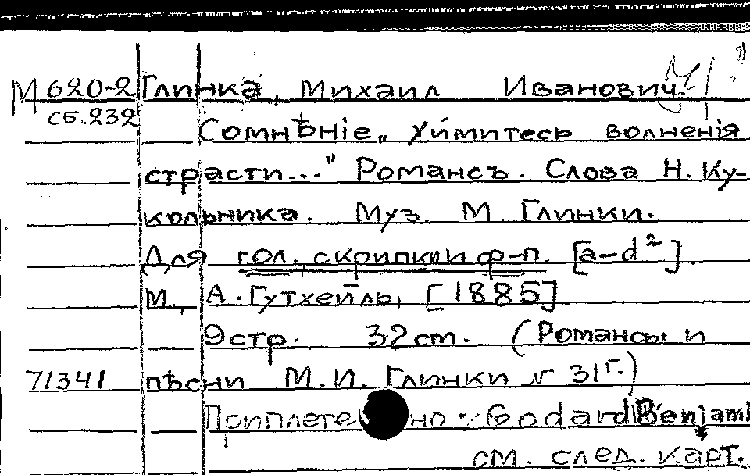 М 620-2 Глинка, Михаил Иванович.
сб.232 Сомнѣніе „Уймитесь волненія
страсти..." Романсъ. Слова Н. Ку-
кольника. Муз. М. Глинки.
Для гол., скрипки и ф-п. [a-d²].
М., А. Гутхейль, [1885]
9 стр. 32 cm. (Романсы и
71341 пѣсни М.И. Глинки № 31г.)
Приплетено: Godard Benjam
см. след. карт.